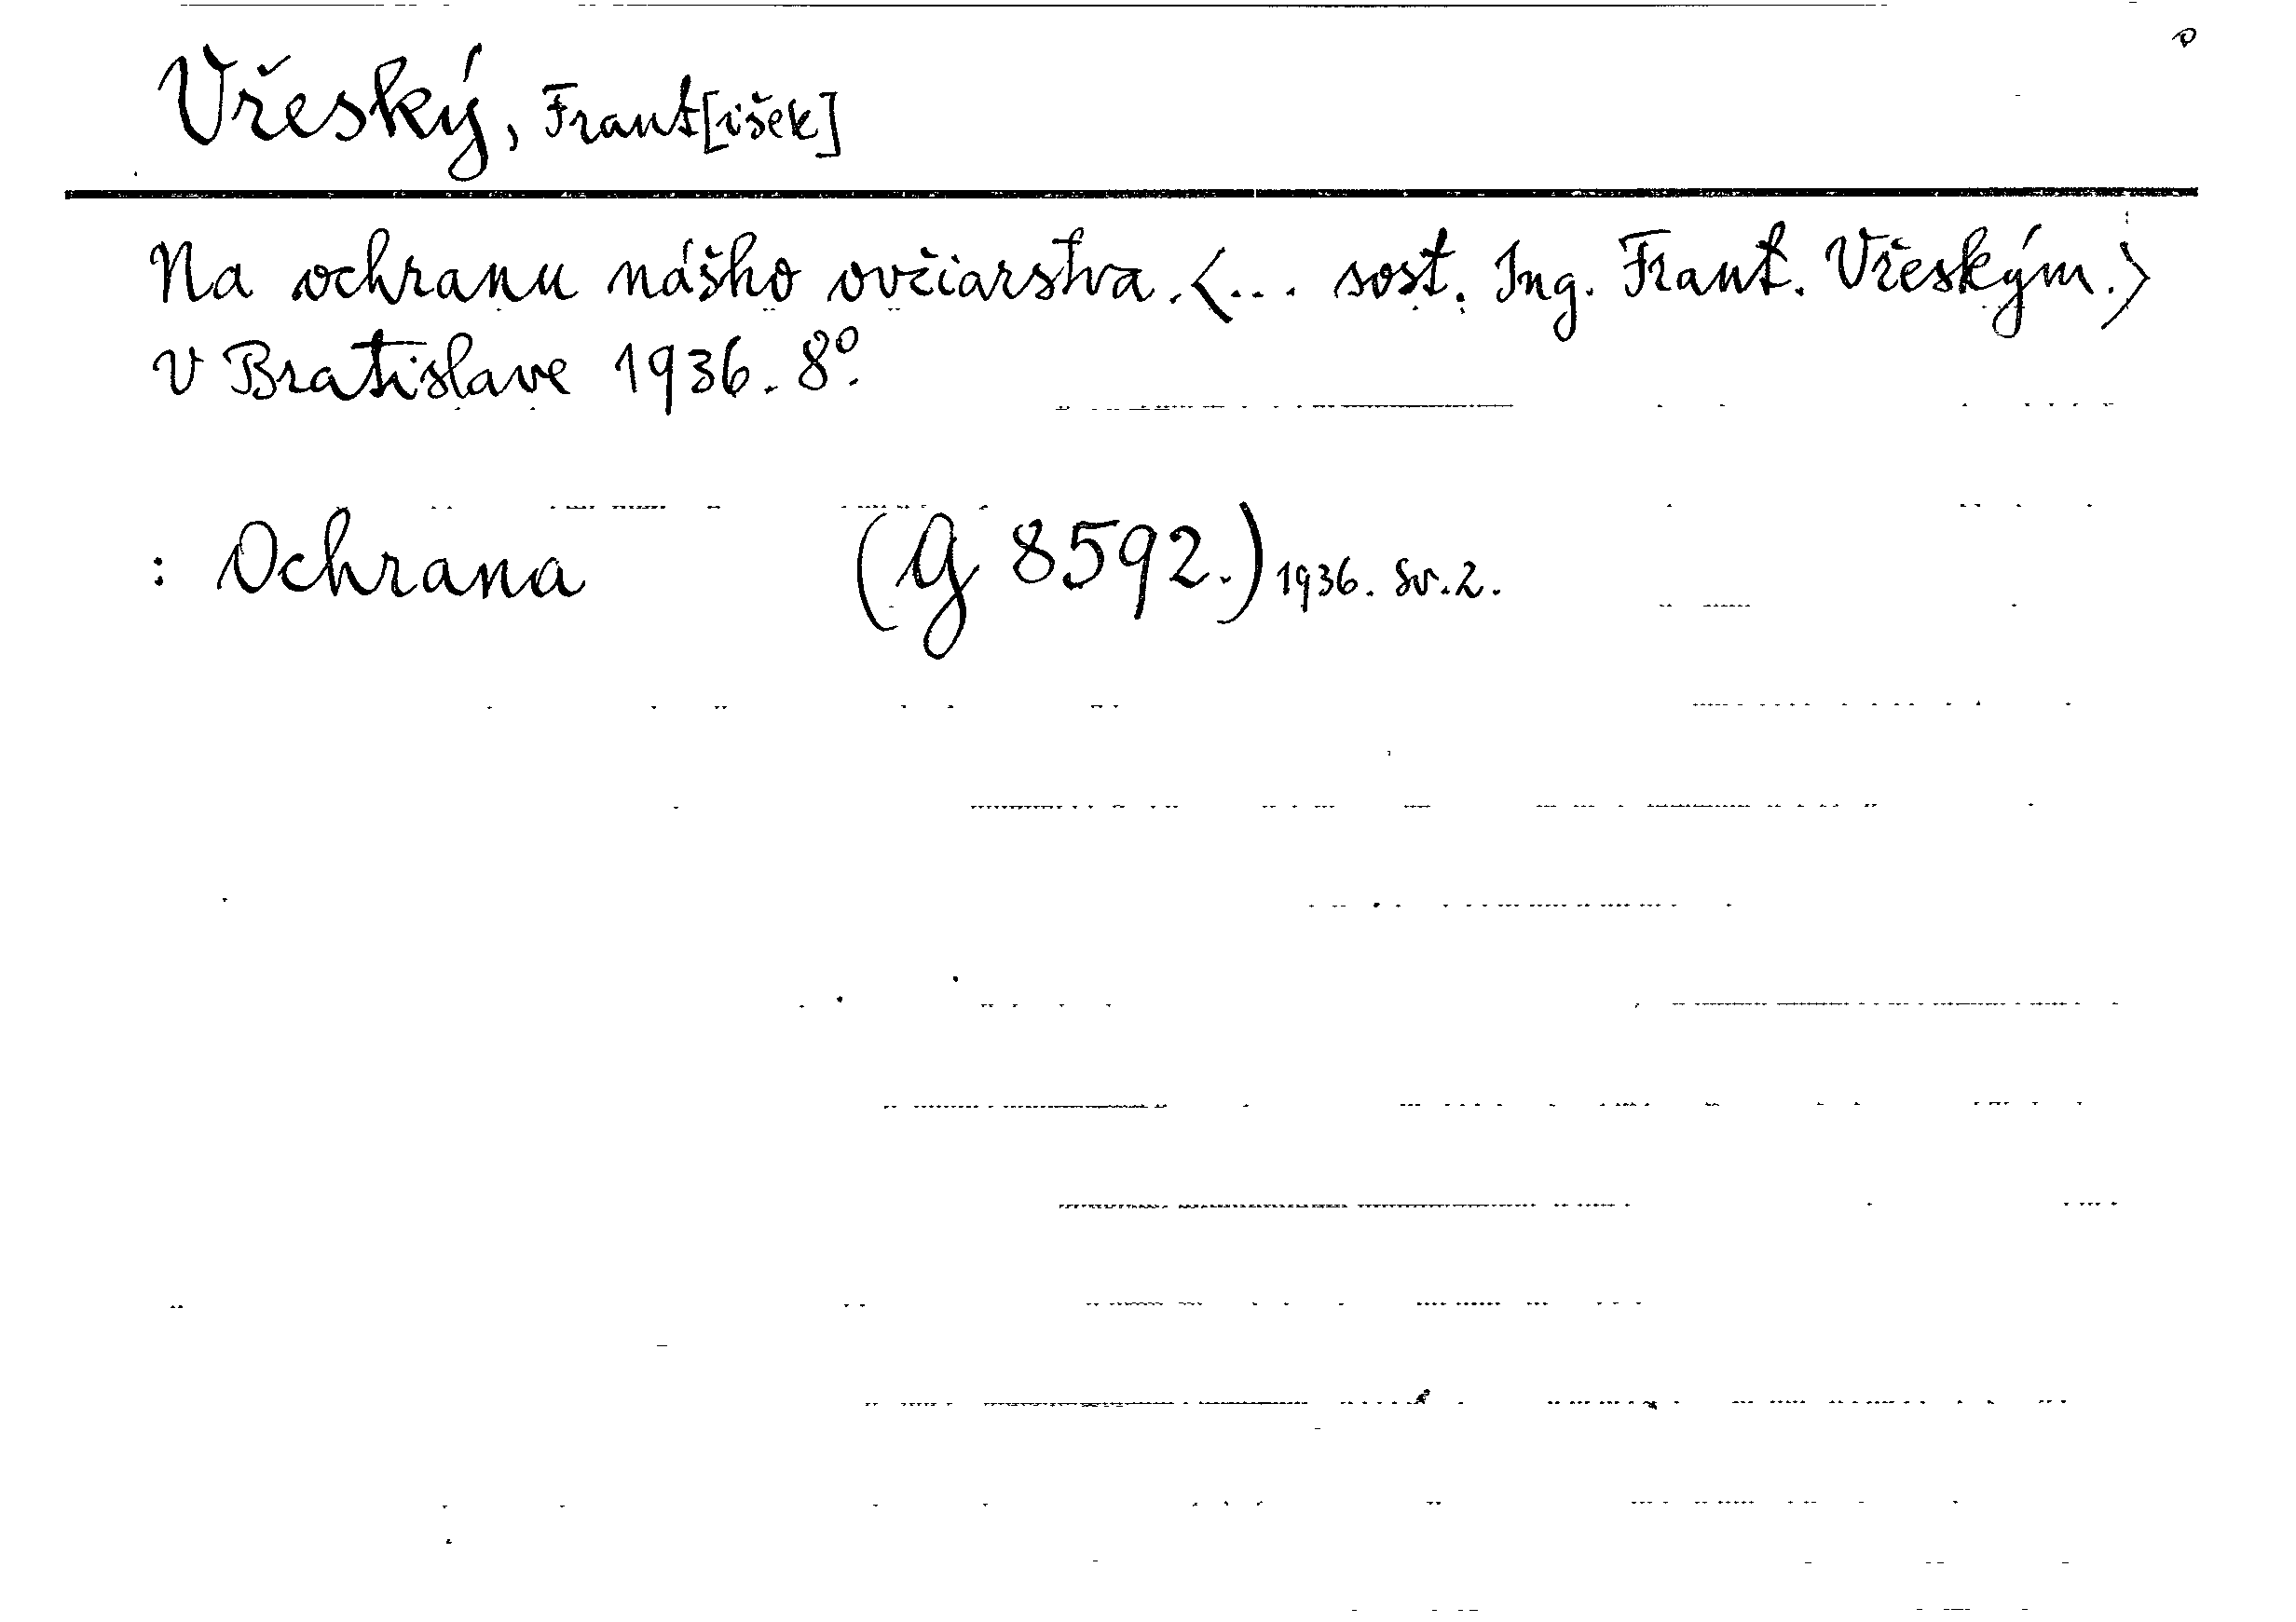 Vřeský, Frant[išek]
Na ochranu nášho ovčiarstva. <... sost. Ing. Frant. Vřeským.>
V Bratislave 1936. 8°.
: Ochrana (G 8592.) 1936. Sv. 2.